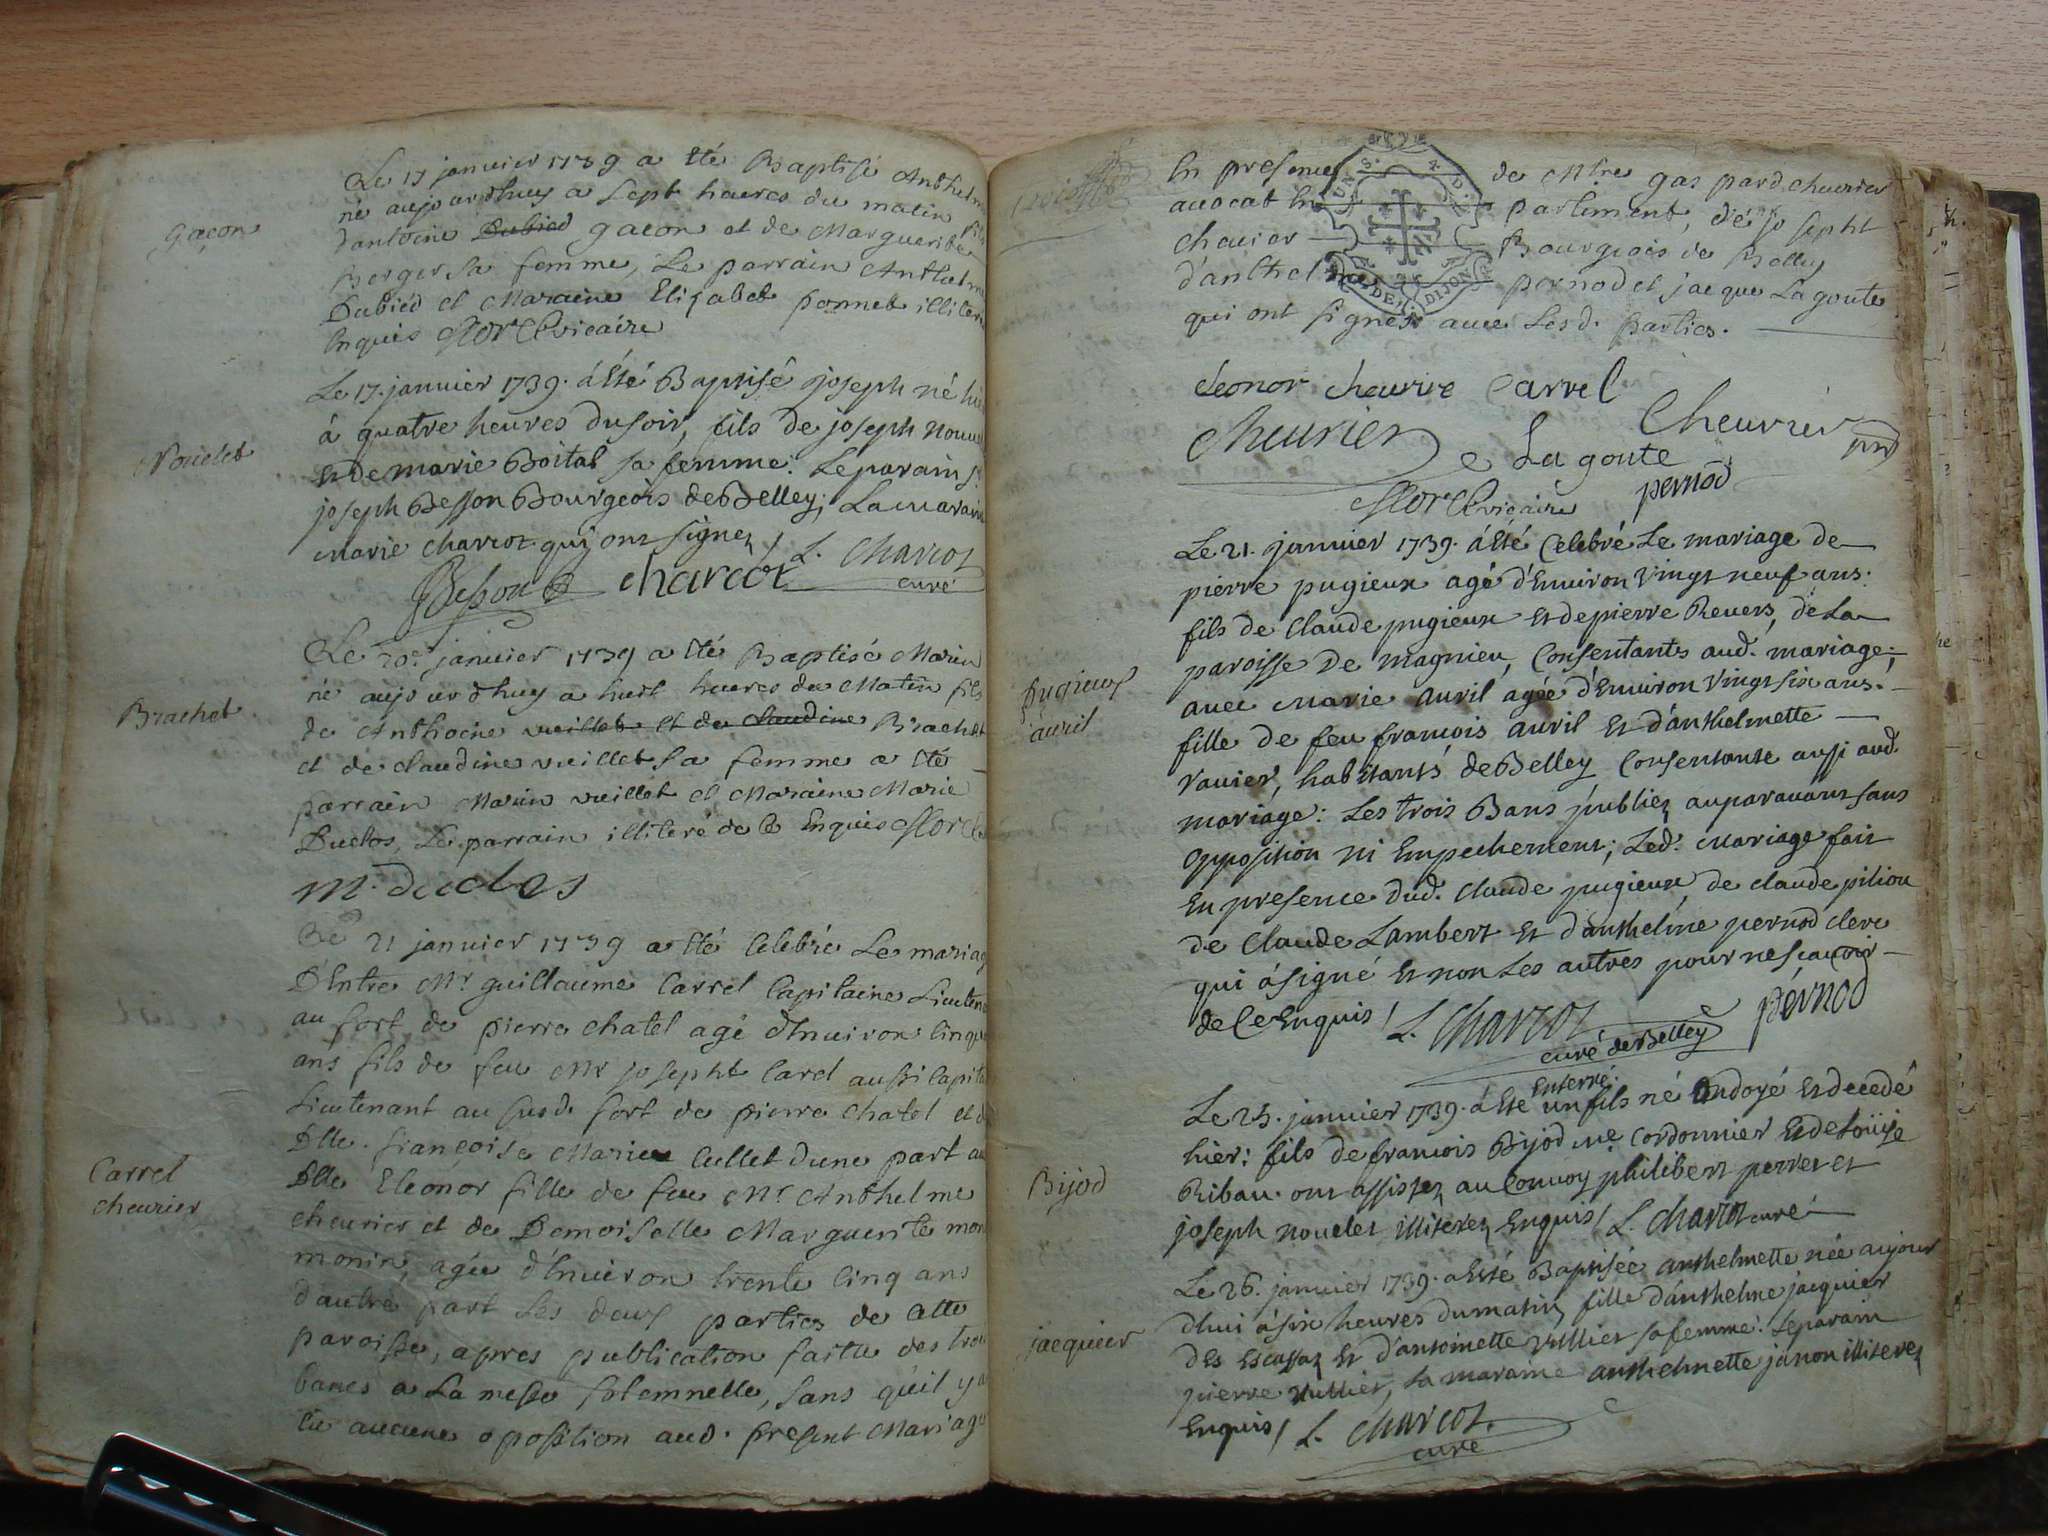 Gaçon
Le 17 janvier 1739 a été Baptisé Anthelme
né aujourdhuy a sept heures du matin fils
d'antoine Dubied gacon et de Marguerite
Berger sa femme, Le parrain Anthelme
Dubied et Maraine Elizabet ponnet illiterés
Enquis vicaire
Nouelet
Le 17. janvier 1739. á Eté Baptisé joseph né hier
á quatre heures du soir, fils de joseph nouelet
Et de marie Boital sa femme: Le parain Sr
joseph Besson Bourgeois de Belley; La maraine
marie charcot qui ont signez /
L. Charcot
Besson charcot curé
Brachet
Le 20e janvier 1739 a été Baptisé Marin
né aujourdhuy a huit heures du Matin fils
de Anthoine vieillet et de claudine Brachet
et de claudine vieillet sa femme a été
parrain Marin vieillet et Maraine Marie
Duclos, Le parrain illiteré de ce Enquis
m. duclos
Carrel
cheurier
Le 21 janvier 1739 a été Celebré Le mariage
D'Entre Mr guillaume Carrel Capitaine Lieutenant
au fort de pierre chatel agé d'Enuiron Cinquante
ans fils de feu Mr josepht Carel aussi Capitaine
Lieutenant au susd. fort de pierre chatel et de
Dlle. françoise Marie Cullet d'une part et
Dlle Eleonor fille de feu Mr Anthelme
cheurier et de Demoiselle Marguerite mon
monin, agée d'Enuiron trente Cinq ans
d'autre part Les deux parties de Cette
paroisse, apres publication faitte des trois
bancs a La messe solemnelle, sans qu'il y ait
Eu aucune oposition aud. present Mariage
En presence de Mtre gaspard cheurier
auocat En parlement, de josepht
cheurier Bourgeois de Belley
d'anthelme pernod et jacque Lagoute
qui ont signés auec Lesd. parties.
GEN. DE DIJON
eleonor cheurire Carrel
Cheurier Cheurier
La goute
vicaire pernod
pugieux
auril
Le 21. janvier 1739. á Eté Celebré Le mariage de
pierre pugieux agé d'Enuiron vingt neuf ans:
fils de Claude pugieux Et de pierre Reuers, de La
paroisse de magnieu, Consentants aud. mariage;
auec marie auril agée d'Enuiron vingt six ans:
fille de feu françois auril Et d'anthelmette
rauier, habitants de Belley Consentante aussi aud.
mariage: Les trois Bans publiez auparauant sans
opposition ni Empechement; Led. mariage fait
En presence dud. Claude pugieux, de claude piliou
de Claude Lambert Et d'anthelme pernod clerc
qui á signé Et non Les autres pour ne scauoir
de Ce Enquis /
L. Charcot pernod
curé de Belley
Bijod
Le 25. janvier 1739. á Eté Enterré un fils né ondoyé Et decedé
hier: fils de francois Bijod me cordonnier Et de Loüise
Riban. ont assistez au Conuoy philibert perret et
joseph nouelet illiterez Enquis / L. charcot curé
jacquier
Le 26. janvier 1739. a Eté Baptisée anthelmette née aujour
dhui á six heures du matin, fille d'anthelme jacquier
des Escassaz Et d'antoinette vullier sa femme: Le parain
pierre vullier, La maraine anthelmette janon illiterez
Enquis / L. charcot.
curé